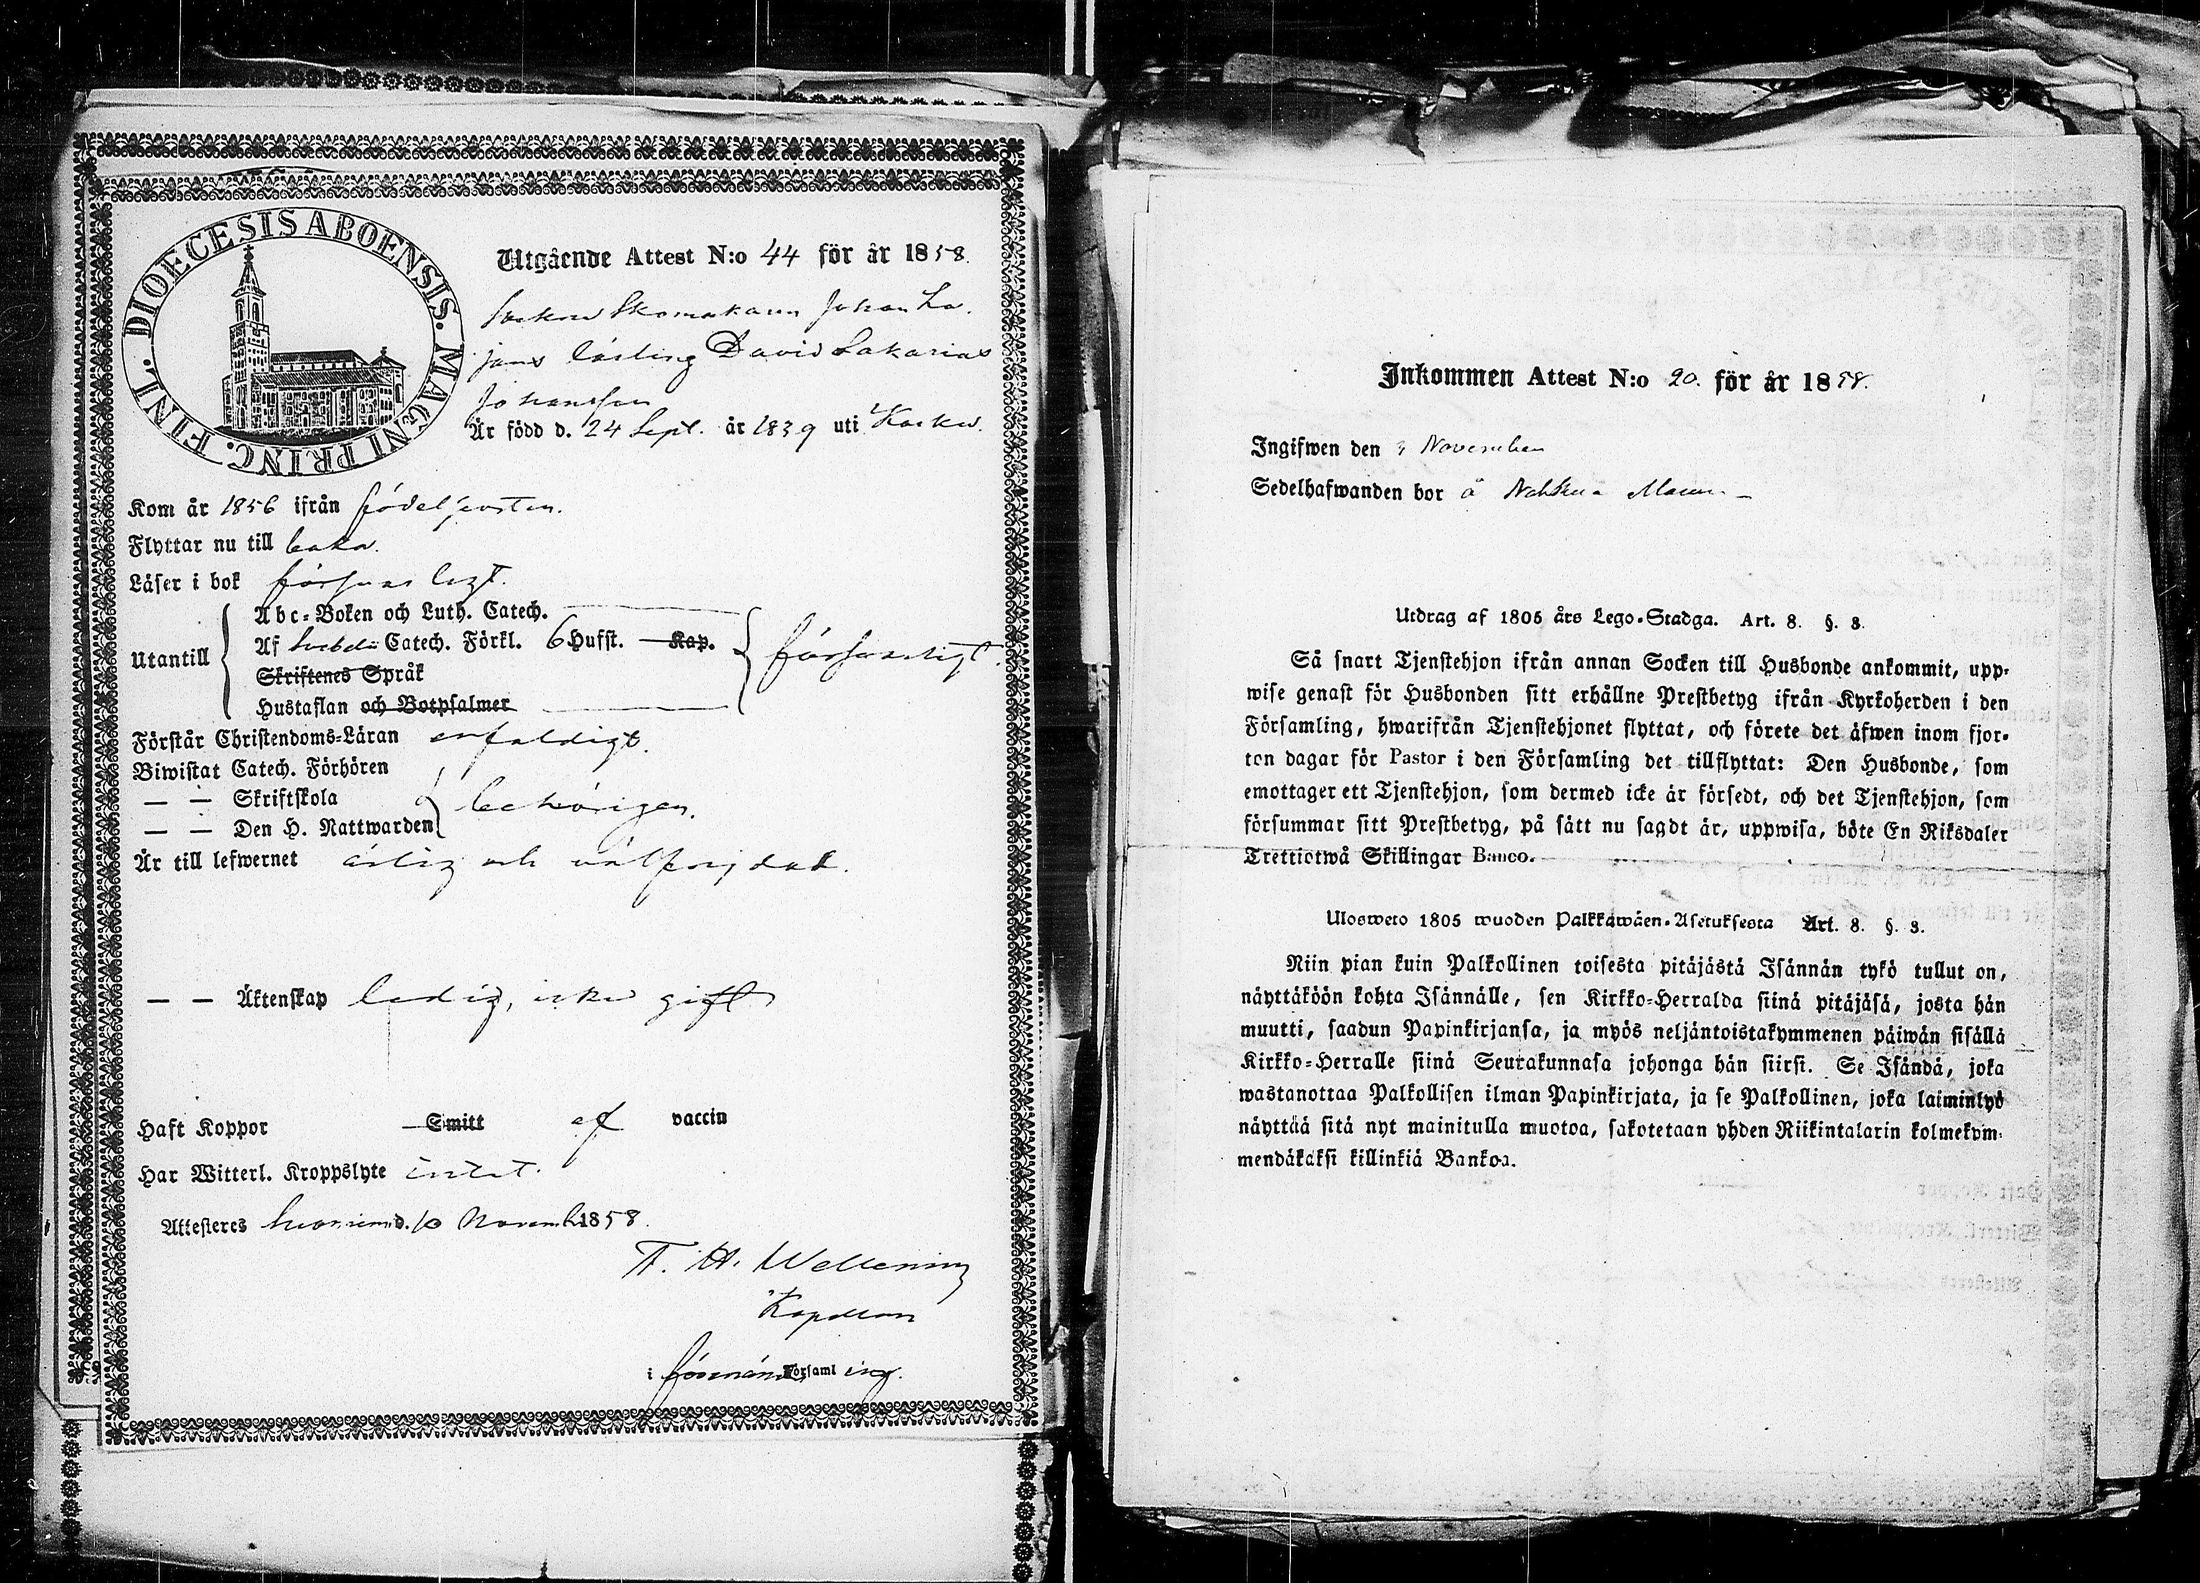 DIOECESIS ABOENSIS. MAGNI PRINC. FINL.
Utgående Attest N:o 44 för år 1858.
Socknes Skomakaren Johan La-
jans lärling David Sakarias
Johansson
Är född d. 24 Sept. år 1839 uti
Kom år 1856 ifrån födelseorten.
Flyttar nu till
Läser i bok försvarligt.
Utantill
Abc-Boken och Luth. Catech.
Af Svebelii Catech. Förkl. 6 Hufst. Kap.
Skriftenes Språk
Hustaflan och Botpsalmer
försvarligt.
Förstår Christendoms-Läran enfaldigt.
Biwistat Catech. Förhören
— — Skriftskola
— — Den H. Nattwarden
behörigen.
Är till lefwernet ärlig och välfrejdad.
— — Äktenskap ledig, icke gift
Haft Koppor Smitt af vaccin
Har Witterl. Kroppslyte intet.
Attesteres d. 10 Novemb. 1858.
Kapellan
i Församling.
Inkommen Attest N:o 20. för år 1858.
Ingifwen den November
Sedelhafwanden bor å
Utdrag af 1805 års Lego-Stadga. Art. 8. §. 3.
Så snart Tjenstehjon ifrån annan Socken till Husbonde ankommit, upp-
wise genast för Husbonden sitt erhållne Prestbetyg ifrån Kyrkoherden i den
Församling, hwarifrån Tjenstehjonet flyttat, och förete det äfwen inom fjor-
ton dagar för Pastor i den Församling det tillflyttat: Den Husbonde, som
emottager ett Tjenstehjon, som dermed icke är försedt, och det Tjenstehjon, som
försummar sitt Prestbetyg, på sätt nu sagdt är, uppwisa, böte En Riksdaler
Trettiotwå Skillingar Banco.
Ulosweto 1805 wuoden Palkkawäen-Asetuksesta Art. 8. §. 3.
Niin pian kuin Palkollinen toisesta pitäjästä Isännän tykö tullut on,
näyttäköön kohta Isännälle, sen Kirkko-Herralda siinä pitäjäsä, josta hän
muutti, saadun Papinkirjansa, ja myös neljäntoistakymmenen päiwän sisällä
Kirkko-Herralle siinä Seurakunnasa johonga hän siirsi. Se Isändä, joka
wastanottaa Palkollisen ilman Papinkirjata, ja se Palkollinen, joka laiminlyö
näyttää sitä nyt mainitulla muotoa, sakotetaan yhden Riikintalarin kolmekym-
mendäkaksi killinkiä Bankoa.